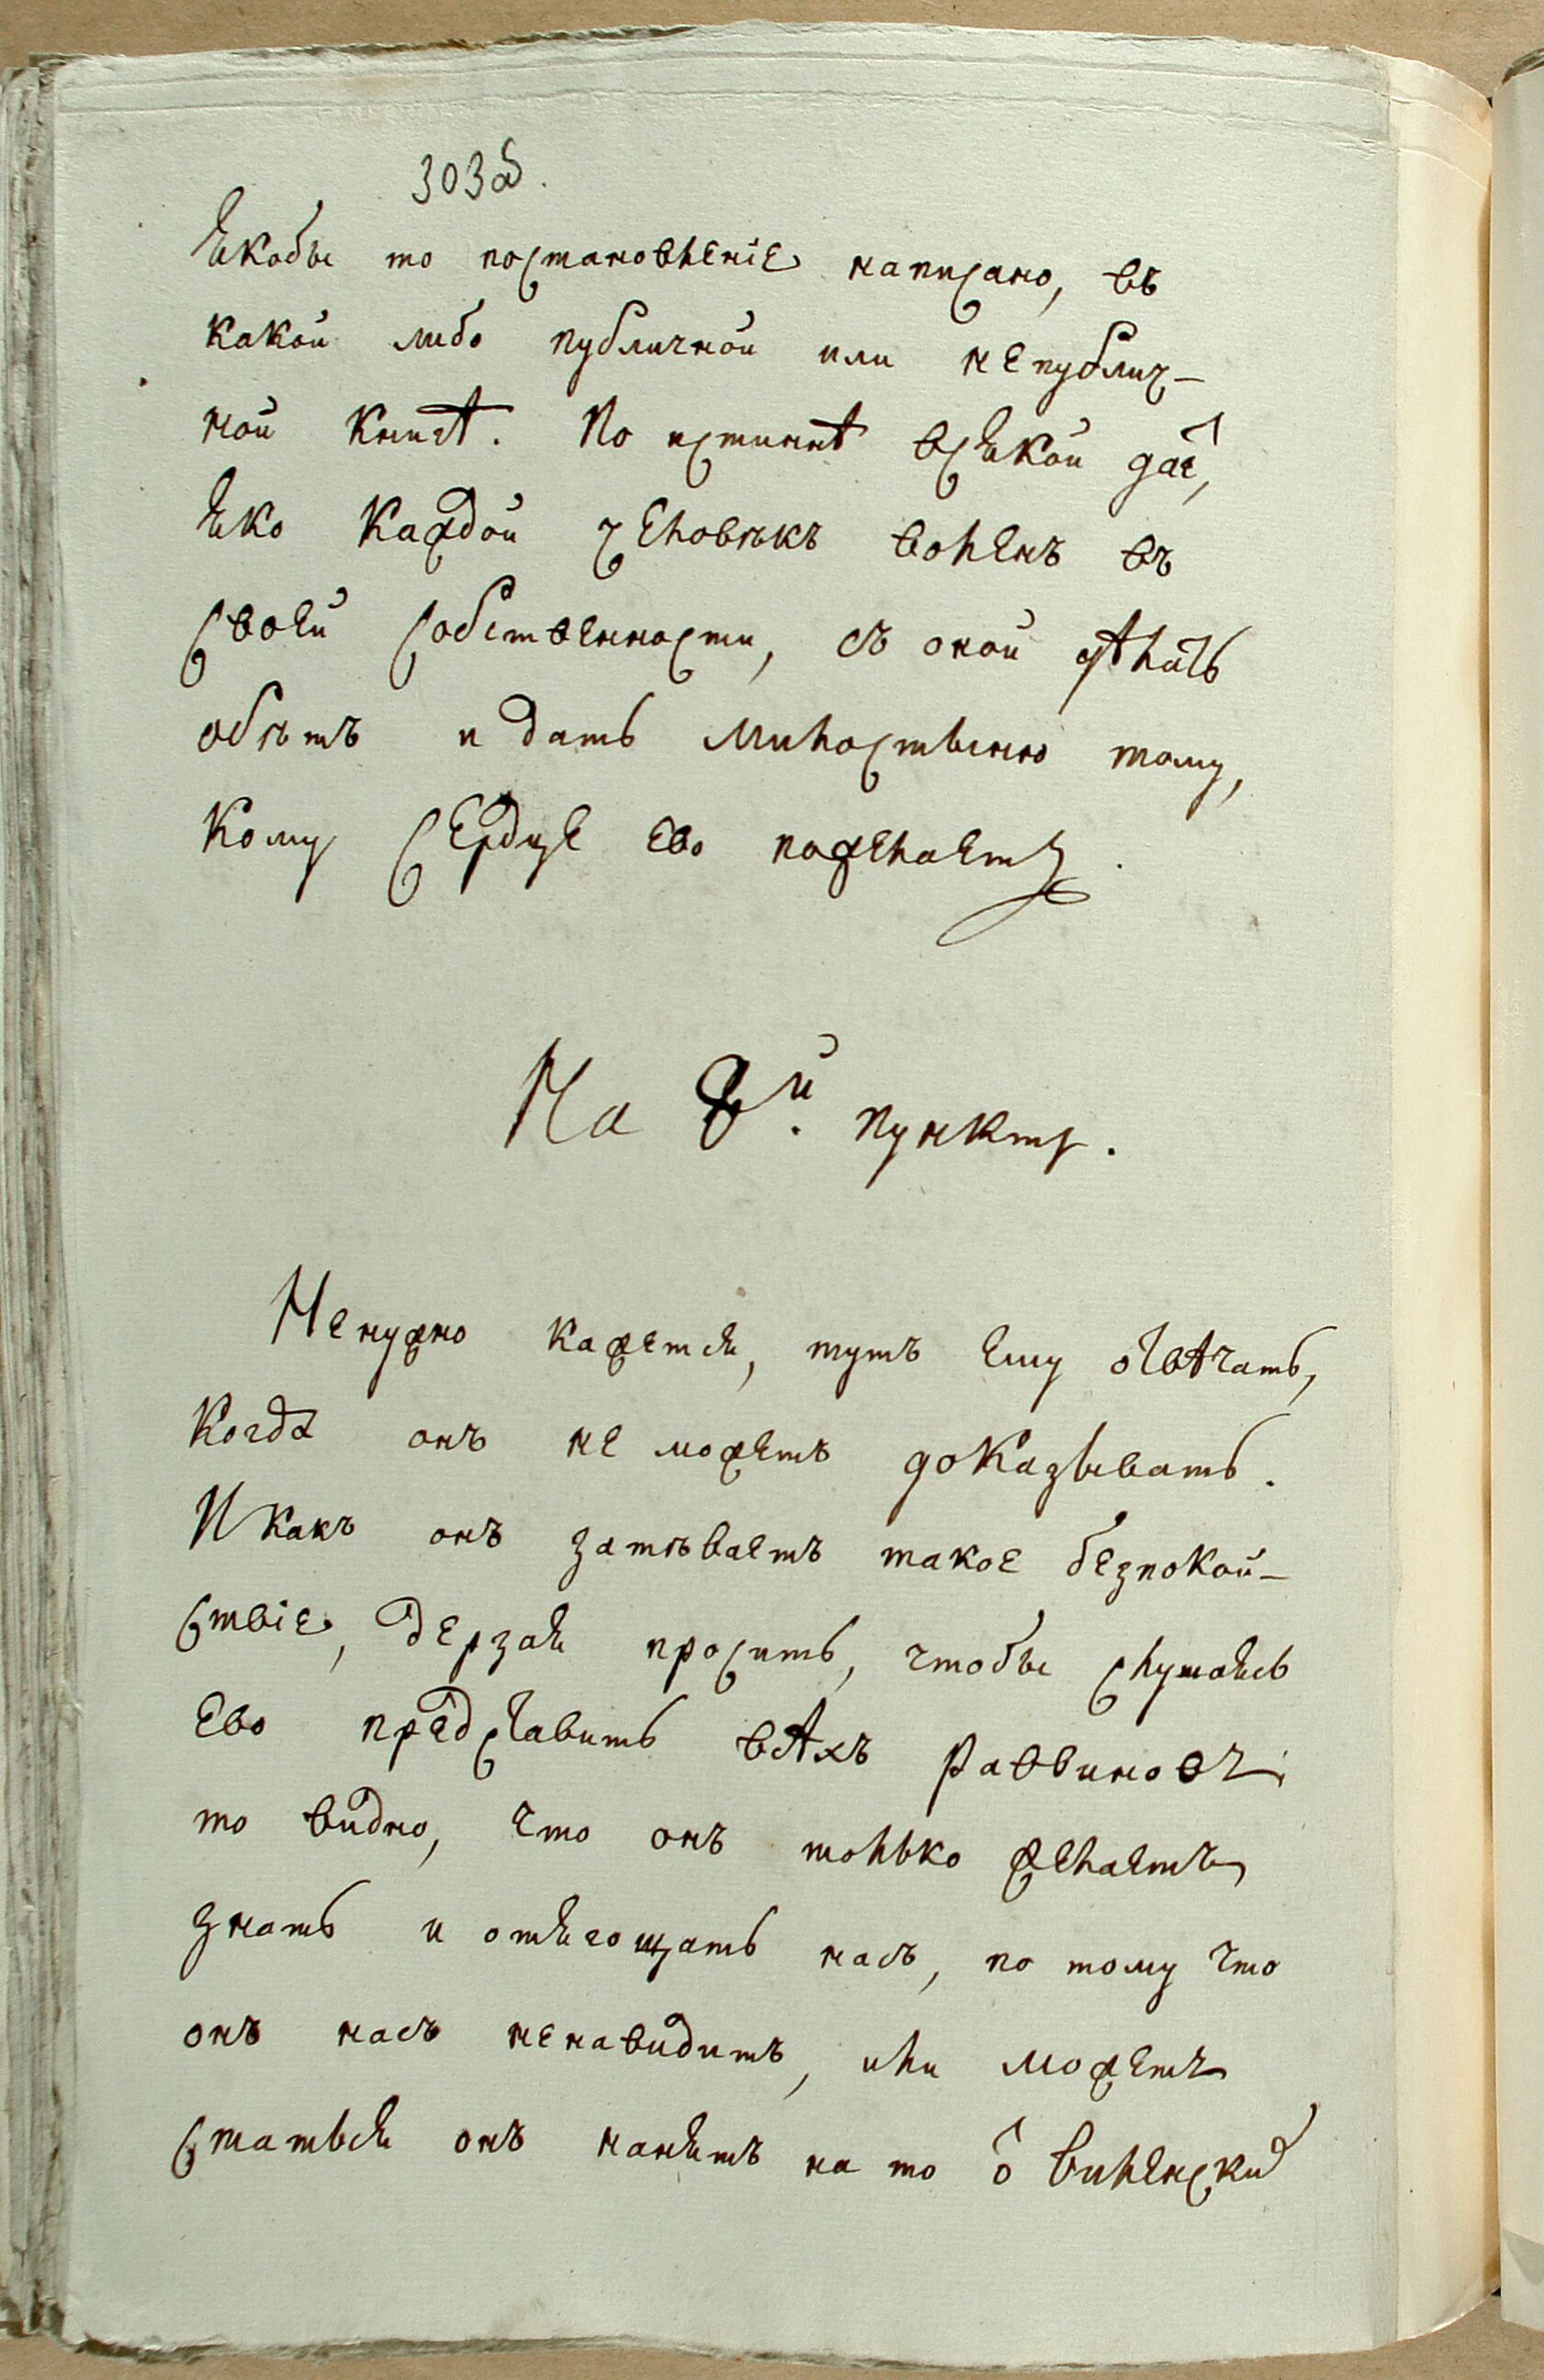 303б.
Якобы то постановленіе написано, въ
какой либо публичной или непублич-
ной книгѣ. По истиннѣ всякой даетъ,
яко каждой человѣкъ воленъ въ
своей собственности, съ оной дѣлать
обѣтъ и дать милоственно тому,
кому сердце ево пожелаетъ.
На 8й. пунктъ.
Ненужно кажется, тутъ ему отвѣчать,
когда онъ не можетъ доказывать.
И какъ онъ затѣваетъ такое безпокой-
ствіе, дерзая просить, чтобы слушаясь
ево представить всѣхъ раввиновъ
то видно, что онъ только желаетъ
гнать и отягощать насъ, по тому что
онъ насъ ненавидитъ, или можетъ
статься онъ нанятъ на то отъ виленских